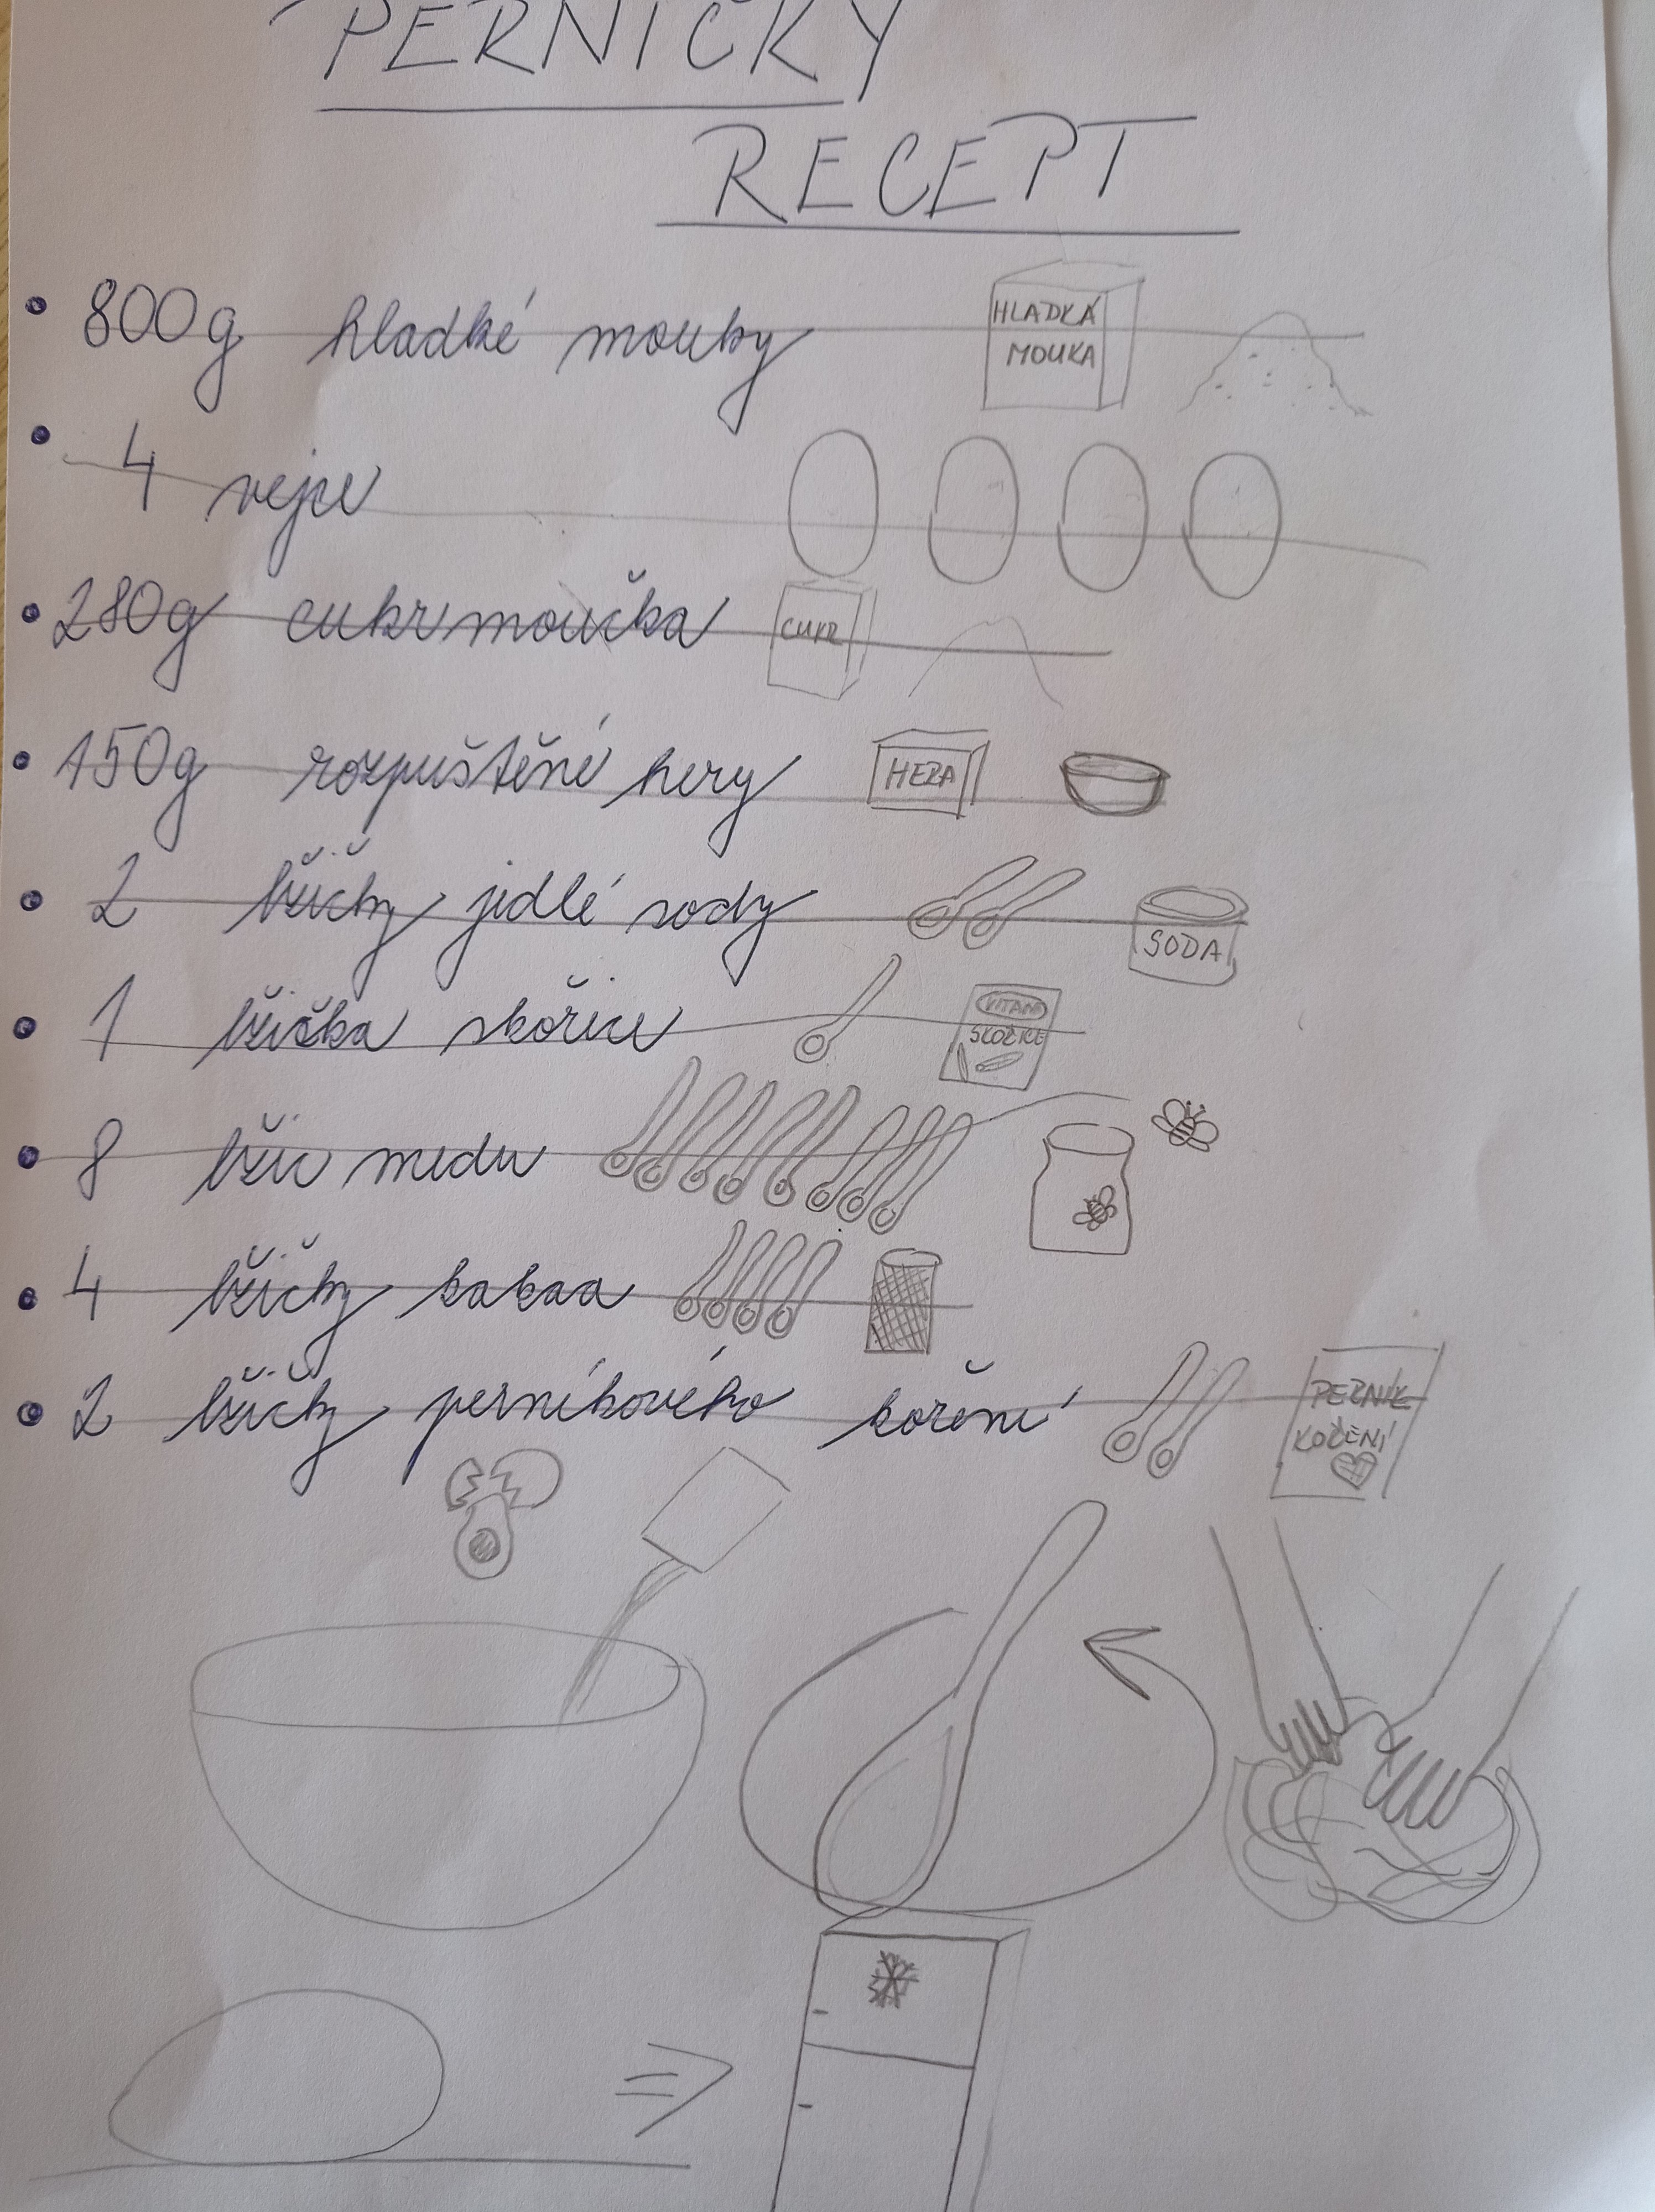 PERNÍČKY
RECEPT
• 800g hladké mouky
HLADKÁ
MOUKA
• 4 vejce
• 280g cukr moučka
CUKR
• 150g rozpuštěné hery
HERA
• 2 lžičky jidlé sody
SODA
• 1 lžička skořice
VITANA
SKOŘICE
• 8 lžic medu
• 4 lžičky kakaa
• 2 lžičky perníkového koření
PERNÍK
KOŘENÍ